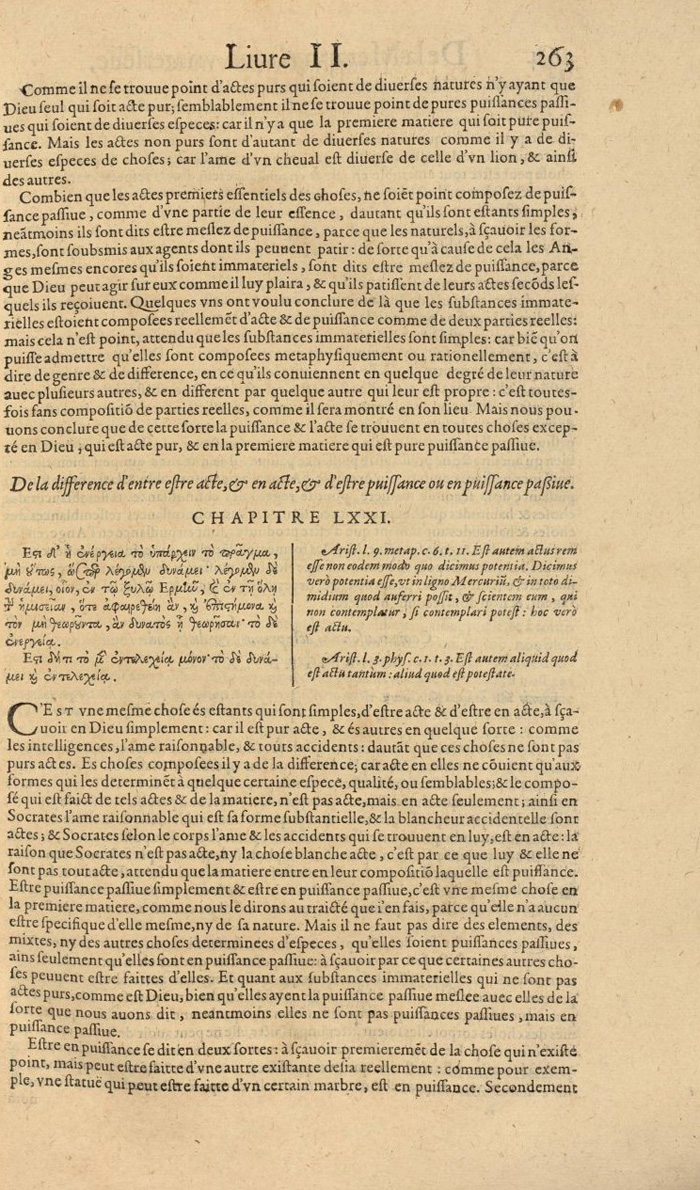 Liure II. 263
Comme il ne se trouue point d'actes purs qui soient de diuerses natures n'y ayant que
Dieu seul qui soit acte pur; semblablement il ne se trouue point de pures puissances passi-
ues qui soient de diuerses especes: car il n'y a que la premiere matiere qui soit pure puis-
sance. Mais les actes non purs sont d'autant de diuerses natures comme il y a de di-
uerses especes de choses; car l'ame d'vn cheual est diuerse de celle d'vn lion, & ainsi
des autres.
Combien que les actes premiers essentiels des choses, ne soiēt point composez de puis-
sance passiue, comme d'vne partie de leur essence, dautant qu'ils sont estants simples;
neātmoins ils sont dits estre meslez de puissance, parce que les naturels, à sçauoir les for-
mes, sont soubsmis aux agents dont ils peuuent patir: de sorte qu'à cause de cela les An-
ges mesmes encores qu'ils soient immateriels, sont dits estre meslez de puissance, parce
que Dieu peut agir sur eux comme il luy plaira, & qu'ils patissent de leurs actes secōds les-
quels ils reçoiuent. Quelques vns ont voulu conclure de là que les substances immate-
rielles estoient composees reellemēt d'acte & de puissance comme de deux parties reelles:
mais cela n'est point, attendu que les substances immaterielles sont simples: car biē qu'on
puisse admettre qu'elles sont composees metaphysiquement ou rationellement, c'est à
dire de genre & de difference, en ce qu'ils conuiennent en quelque degré de leur nature
auec plusieurs autres, & en different par quelque autre qui leur est propre: c'est toutes-
fois sans compositiō de parties reelles, comme il sera montré en son lieu Mais nous pou-
uons conclure que de cette sorte la puissance & l'acte se trouuent en toutes choses excep-
té en Dieu, qui est acte pur, & en la premiere matiere qui est pure puissance passiue.
De la difference d'entre estre acte, & en acte, & d'estre puissance ou en puissance passiue.
CHAPITRE LXXI.
Ἔςι δ' ἡ ἐνέργεια τὸ ὑπάρχειν τὸ πρᾶγμα,
μὴ οὕτως, ὥσπερ λέγομεν δυνάμει· λέγομεν δὲ
δυνάμει, οἷον, ἐν τῷ ξυλῳ Ἑρμῆν, & ἐν τῇ ὅλῃ
τὴν ἡμίσειαν, ὅτι ἀφαιρεθείη ἄν, καὶ ἐπιςήμονα καὶ
τὸν μὴ θεωροῦντα, ἂν δυνατὸς ᾖ θεωρῆσαι· τὸ δὲ
ἐνεργείᾳ.
Ἔςι δή τι τὸ μὲν ἐντελεχείᾳ μόνον· τὸ δὲ δυνά-
μει καὶ ἐντελεχείᾳ.
Arist. l. 9. metap. c. 6. t. 11. Est autem actus rem
esse non eodem modo quo dicimus potentia. Dicimus
verò potentia esse, vt in ligno Mercuriū, & in toto di-
midium quod auferri possit, & scientem eum, qui
non contemplatur, si contemplari potest: hoc verò
est actu.
Arist. l. 3. phys. c. 1. t. 3. Est autem aliquid quod
est actu tantum: aliud quod est potestate.
C'EST vne mesme chose és estants qui sont simples, d'estre acte & d'estre en acte, à sça-
uoir en Dieu simplement: car il est pur acte, & és autres en quelque sorte: comme
les intelligences, l'ame raisonnable, & touts accidents: dautāt que ces choses ne sont pas
purs actes. Es choses composees il y a de la difference; car acte en elles ne cōuient qu'aux
formes qui les determinēt à quelque certaine espece, qualité, ou semblables; & le compo-
sé qui est faict de tels actes & de la matiere, n'est pas acte, mais en acte seulement; ainsi en
Socrates l'ame raisonnable qui est sa forme substantielle, & la blancheur accidentelle sont
actes; & Socrates selon le corps l'ame & les accidents qui se trouuent en luy, est en acte: la
raison que Socrates n'est pas acte, ny la chose blanche acte, c'est par ce que luy & elle ne
sont pas tout acte, attendu que la matiere entre en leur compositiō laquelle est puissance.
Estre puissance passiue simplement & estre en puissance passiue, c'est vne mesme chose en
la premiere matiere, comme nous le dirons au traicté que i'en fais, parce qu'elle n'a aucun
estre specifique d'elle mesme, ny de sa nature. Mais il ne faut pas dire des elements, des
mixtes, ny des autres choses determinees d'especes, qu'elles soient puissances passiues,
ains seulement qu'elles sont en puissance passiue: à sçauoir par ce que certaines autres cho-
ses peuuent estre faittes d'elles. Et quant aux substances immaterielles qui ne sont pas
actes purs, comme est Dieu, bien qu'elles ayent la puissance passiue meslee auec elles de la
sorte que nous auons dit, neantmoins elles ne sont pas puissances passiues, mais en
puissance passiue.
Estre en puissance se dit en deux sortes: à sçauoir premieremēt de la chose qui n'existe
point, mais peut estre faitte d'vne autre existante desia reellement: comme pour exem-
ple, vne statuë qui peut estre faitte d'vn certain marbre, est en puissance. Secondement